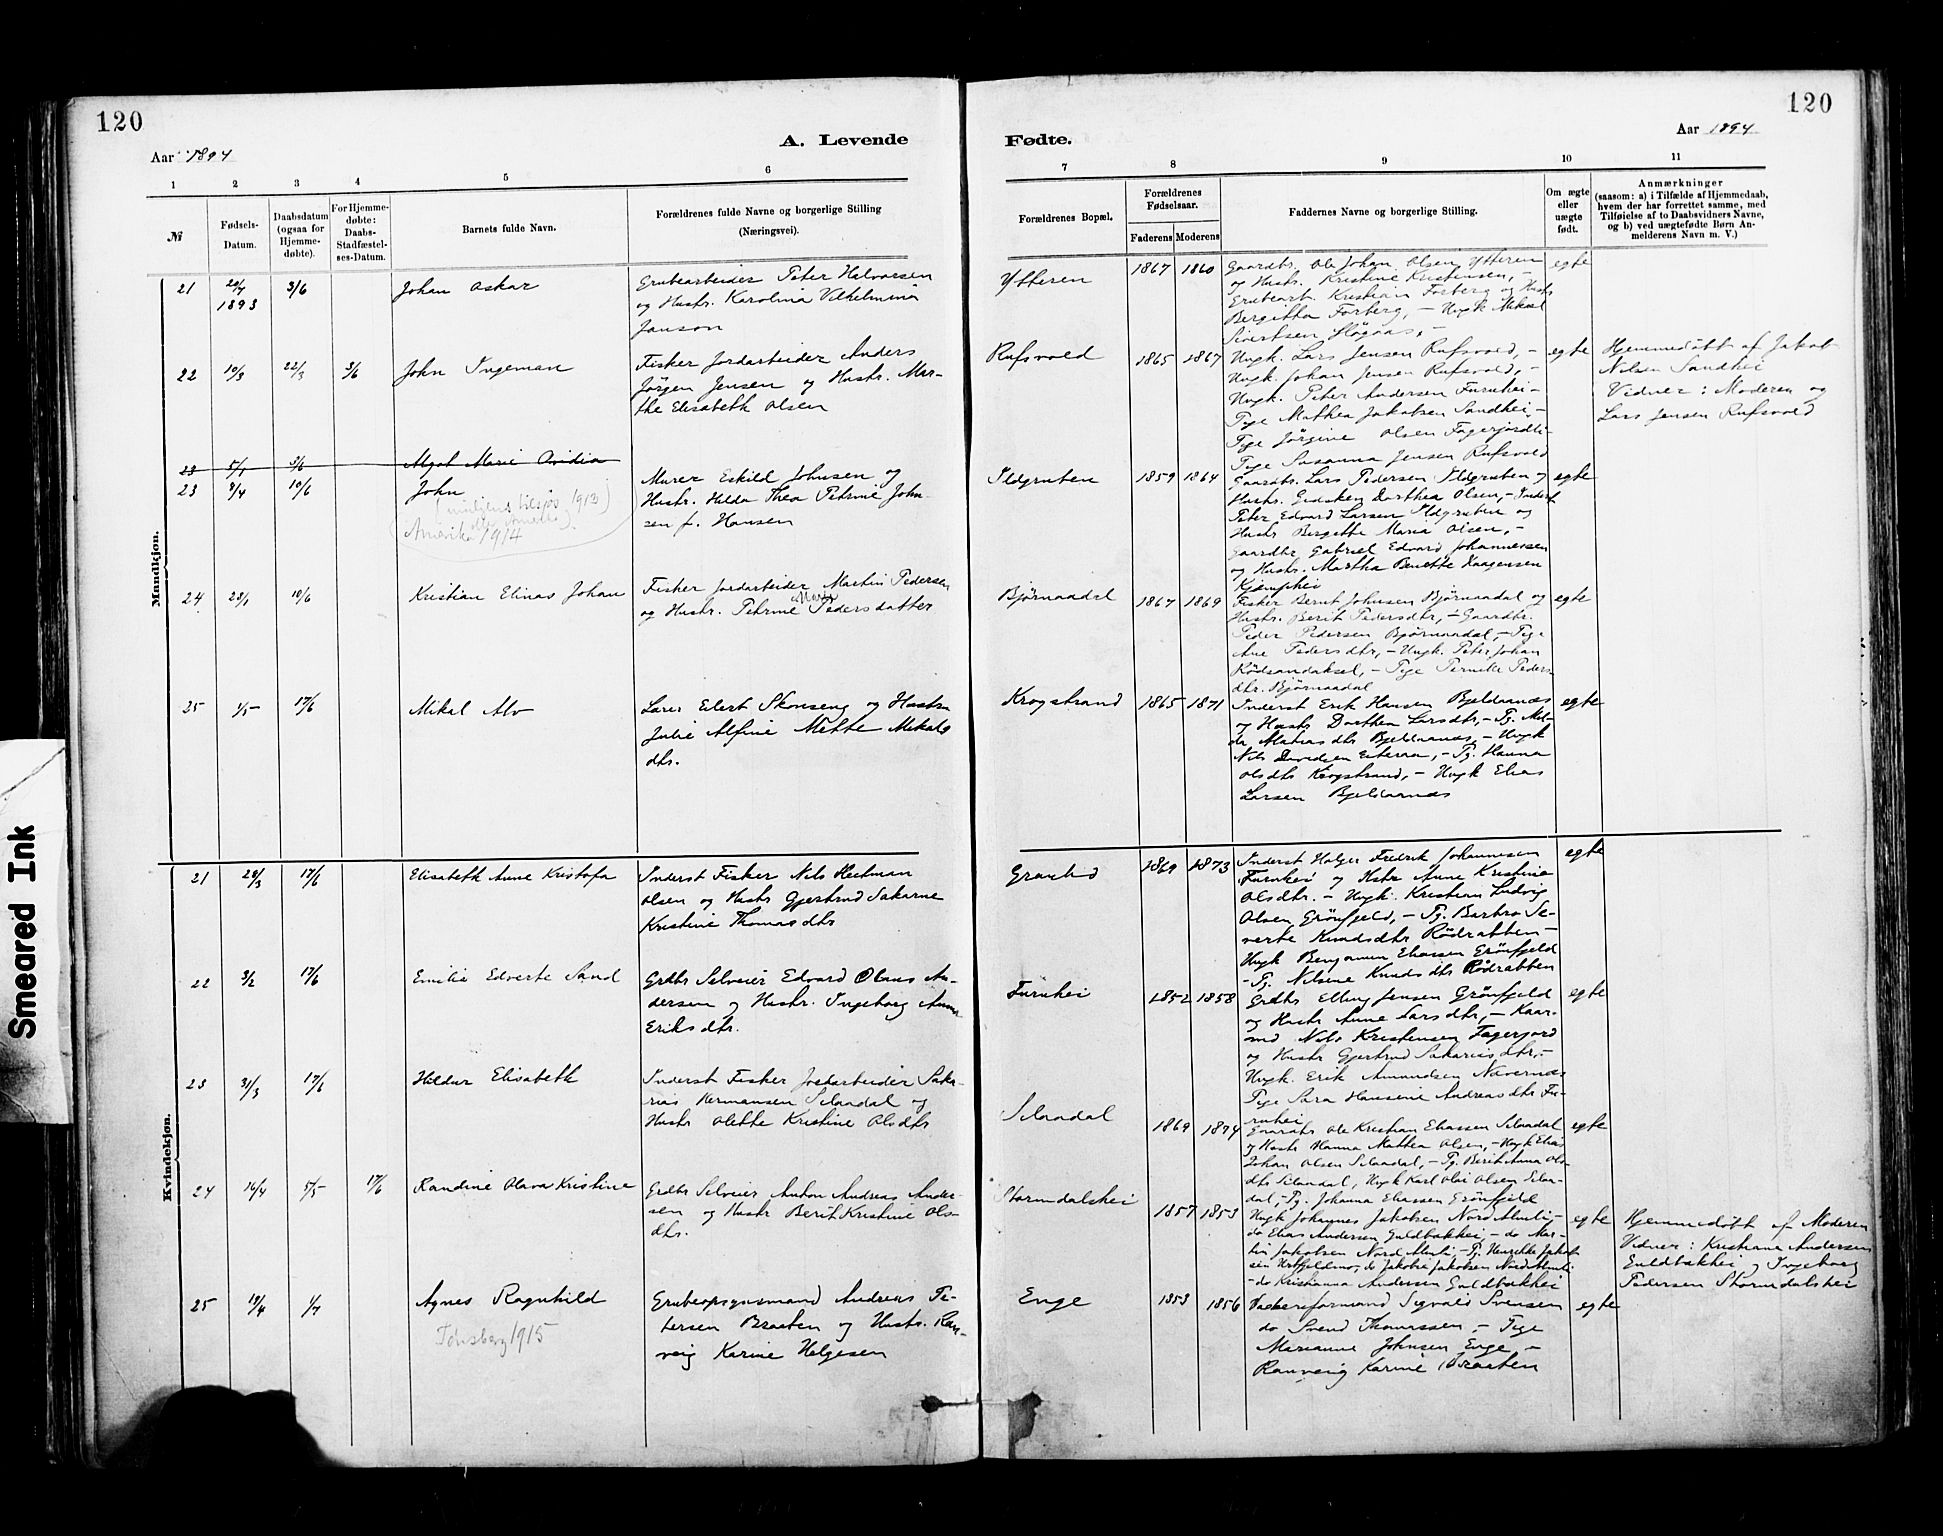 120
Aar 1894
A. Levende
1 2 3 4 5 6
№
Fødsels-
Datum.
Daabsdatum
(ogsaa for
Hjemme-
døbte).
For Hjemme-
døbte:
Daabs-
Stadfæstel-
ses-Datum.
Barnets fulde Navn.
Forældrenes fulde Navne og borgerlige Stilling
(Næringsvei).
Mandkjøn.
21 1893 3/6 Johan Oskar
Grubearbeider Peter Halvorsen
og Hustr. Karolina Vilhelmina
Janson
22 10/3 22/3 3/6 John Ingeman
Fisker Jordarbeider Anders
Jörgen Jensen og Hustr. Mar-
the Elisabeth Olsen
23 5/1 3/6 Marie Ovidia
23 8/4 10/6 John
1913
Amerika 1914
Murer Eskild Johnsen og
Hustr. Hilda Thea Petrine John-
sen f. Hansen
24 28/1 10/6 Kristian Elinas Johan
Fisker Jordarbeider Martin Pedersen
og Hustr. Petrine Marie Pedersdatter
25 1/5 17/6 Mikal Alv
Lærer Edert Skonseng og Hustru
Julie Alfine Mette Mikals
dtr.
Kvindekjøn.
21 28/3 17/6 Elisabeth Anne Kristofa
Inderst Fisker Nils Heitman
Olsen og Hustr Gjertrud Sakarine
Kristine Thomasdtr
22 3/2 17/6 Emilie Edverte Sand
Grdbr Selveier Edvard Olaus An-
dersen og Hustr. Ingeborg Anna
Eriksdtr.
23 31/3 17/6 Hildur Elisabeth
Inderst Fisker Jordarbeider Saka-
rias Hermansen Silaadal og
Hustr Olette Kristine Olsdtr
24 16/4 5/5 17/6 Randine Olava Kristine
Grdbr Selveier Anton Andreas Ander-
sen og Hustr Berit Kristine Ols-
dtr.
25 19/4 1/7 Agnes Ragnhild
Tønsberg 1915
Grubeopsynsmand Andreas Pe-
tersen Braaten og Hustr. Ran-
veig Karine Helgesen
120
Fødte.
Aar 1894
7 8 9 10 11
Forældrenes Bopæl.
Forældrenes
Fødselsaar.
Faderens Moderens
Faddernes Navne og borgerlige Stilling.
Om ægte
eller
uægte
født.
Anmærkninger
(saasom: a) i Tilfælde af Hjemmedaab,
hvem der har forrettet samme, med
Tilføielse af to Daabsvidners Navne,
og b) ved uægtefødte Børn An-
melderens Navn m. V.)
Ytteren 1867 1860 egte
Gaardbr. Ole Johan Olsen Ytteren
og Hustr. Kristine Kristensen, -
Grubearb. Kristian Forberg og Hustr
Bergitta Forberg, - Ungk Mikal
Sivertsen
Rufsvold 1865 1867 egte
Ungk. Lars Jensen Rufsvold, -
Ungk. Johan Jensen Rufsvold, -
Ungk. Peter Andersen Furuhei -
Pige Mathea Jakobsen Sandhei, -
Pige Jörgine Olsen Fagerjordli
Pige Susanna Jensen Rufsvold
Hjemmedöbt af Jakob
Nilsen Sandhei
Vidner: Moderen og
Lars Jensen Rufsvold
Ildgruben 1859 1864 egte
Gaardbr. Lars Pedersen Ildgruben og
Hustr. Gidsken Dorthea Olsen, - Inderst
Peter Edvard Larsen Ildgruben og
Hustr Bergitte Maria Olsen, -
Gaardbr Gabriel Edvard Johannessen
og Hustr. Martha Benette Kaagensen
Bjørnaadal 1867 1869 egte
Fisker Bernt Johnsen Bjørnaadal og
Hustr. Berit Pedersdtr, - Gaardbr.
Peder Pedersen Bjørnaadal, - Pige
Ane Pedersdtr, - Ungk. Peter Johan
Rödsandaksel, - Pige Pernille Peders
dtr. Bjørnaadal
Krogstrand 1865 1871 egte
Inderst Erik Hansen Bjeldaanæs
og Hustr Dorthea Larsdtr, - Pg.
Matiasdtr Bjeldaanæs, - Ungk
Nils Davidsen - Pg. Hanna
Olsdtr Krogstrand, - Ungk Elias
Larsen Bjeldaanæs
1869 1873 egte
Inderst Holger Fredrik Johannesen
Furuhei og Hstr Anne Kristine
Olsdtr. - Ungk. Kristian Ludvig
Olsen Grönfjeld, - Pg. Barbro Se-
verte Knudsdtr Rödrabben -
Ungk Benjamin Eliassen Grönfjeld
- Pg. Nilsine Knudsdtr Rödrabben
Furuhei 1852 1858 egte
Grdbr Elling Jensen Grönfjeld
og Hustr Anne Larsdtr, - Kaar-
md Nils Kristensen Fagerjord
og Hustr Gjertrud Sakariasdtr, -
Ungk. Erik Amundsen Nævernæs
Pige Sara Hansine Andreasdtr Fu-
ruhei
Silaadal 1869 1874 egte
Gaardbr Ole Kristian Eliassen Silaadal
og Hustr Hanna Mathea Olsen, - Ungk Elias
Johan Olsen Silaadal, - Pg. Berit Anna Ols-
dtr Silaadal, Ungk Karl Olai Olsen Silaa-
dal, - Pg. Johanna Eliassen Grönfjeld
Stormdalshei 1857 1853 egte
Ungk Johannes Jakobsen Nord Almli, -
do Elias Andersen Guldbakhei, - do Mar-
tin Jakobsen Nord Almli, - Pg. Henrikke Jakob
sen do Jakobie Jakobsen Nord Almli
- do Kristianna Andersen Guldbakhei
Hjemmedöbt af Moderen
Vidner: Kristiana Andersen
Guldbakhei og Ingeborg
Pedersen Stormdalshei
Enge 1853 1856 egte
Vaskeriformand Sigvald Svensen
do Svend Thomassen, - Pige
Marianne Johnsen Enge, -
Ranveig Karine Braaten
Smeared Ink